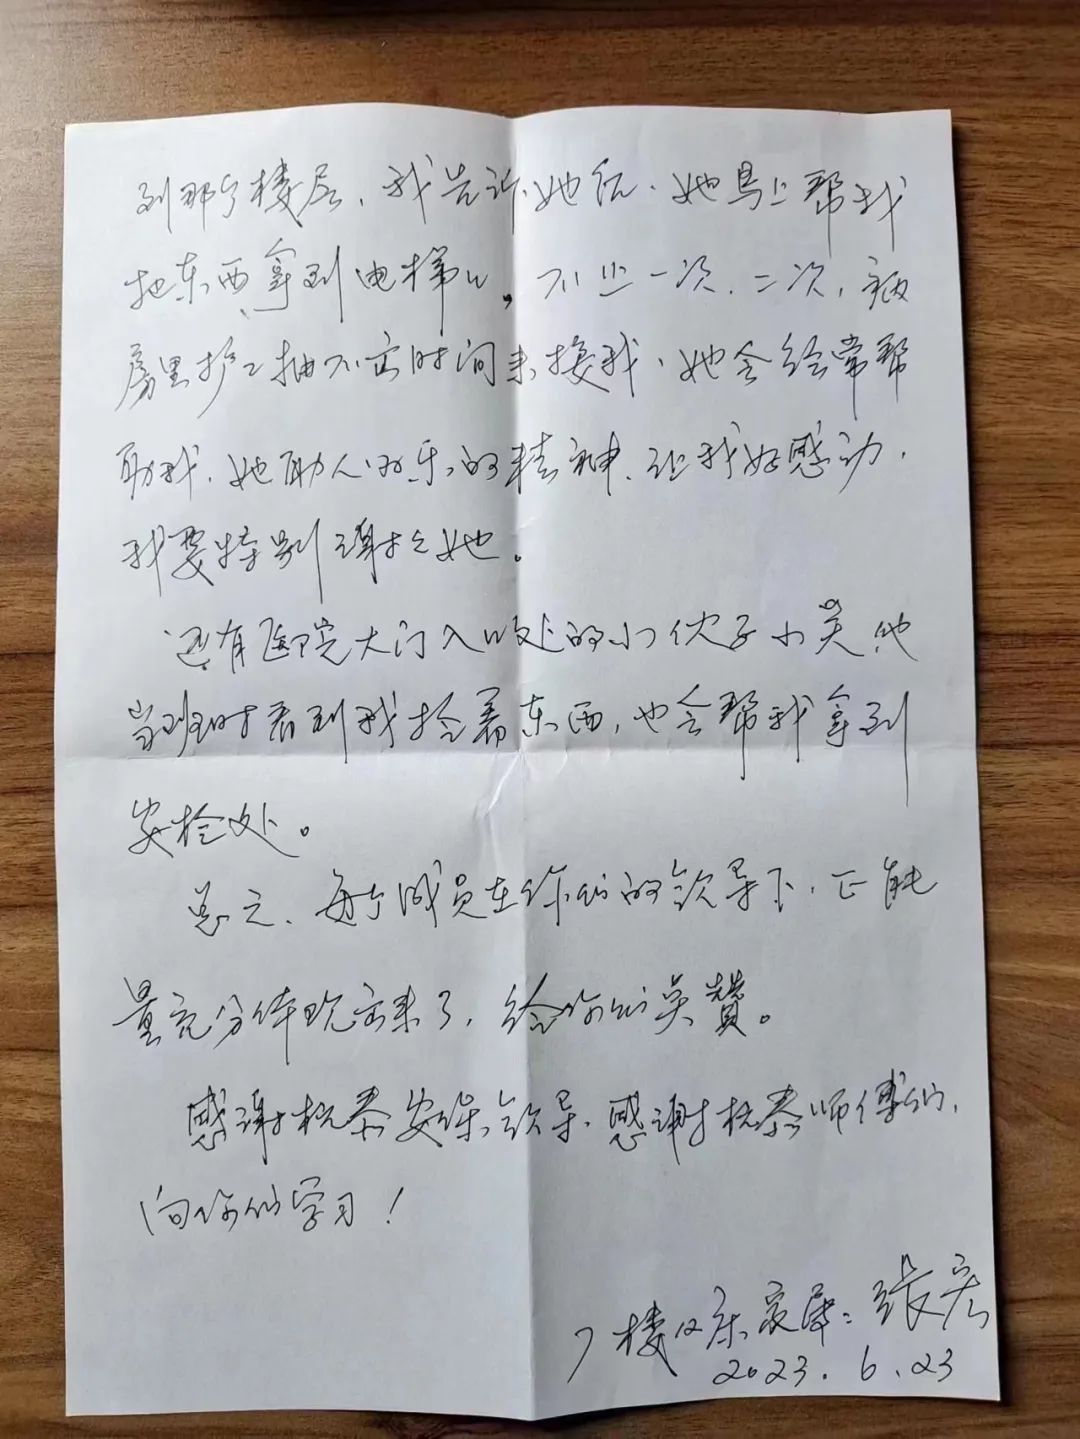 到那个楼层，我告诉她后，她马上帮我
把东西拿到电梯口，不止一次、二次，病
房里护工抽不出时间来接我，她会经常帮
助我，她助人为乐的精神，让我好感动，
我要特别谢谢她。
还有医院大门入口处的小伙子小吴他
当班时看到我拎着东西，也会帮我拿到
安检处。
总之，每个成员在你们的领导下，正能
量充分体现出来了，给你们点赞。
感谢杭泰安保领导，感谢杭泰师傅们，
向你们学习！
7楼 床家属：张宏
2023.6.23